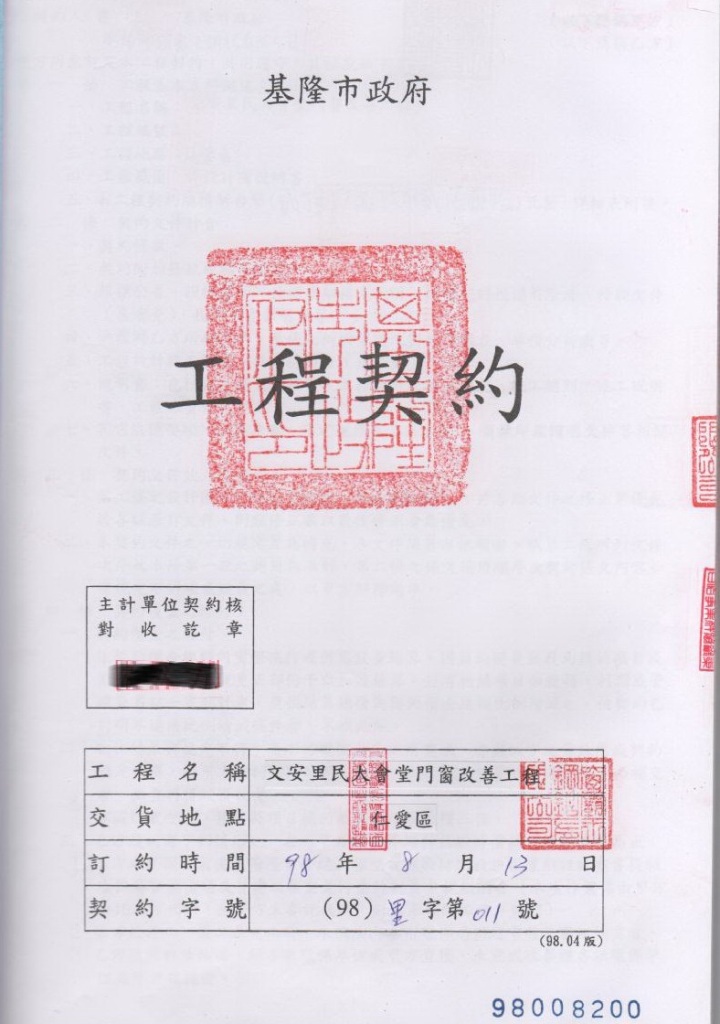 基隆市政府
工程契約
主計單位契約核
對收訖章
工程名稱 文安里民大會堂門窗改善工程
交貨地點 仁愛區
訂約時間 98 年 8 月 13 日
契約字號 (98) 里 字第 011 號
(98.04版)
98008200